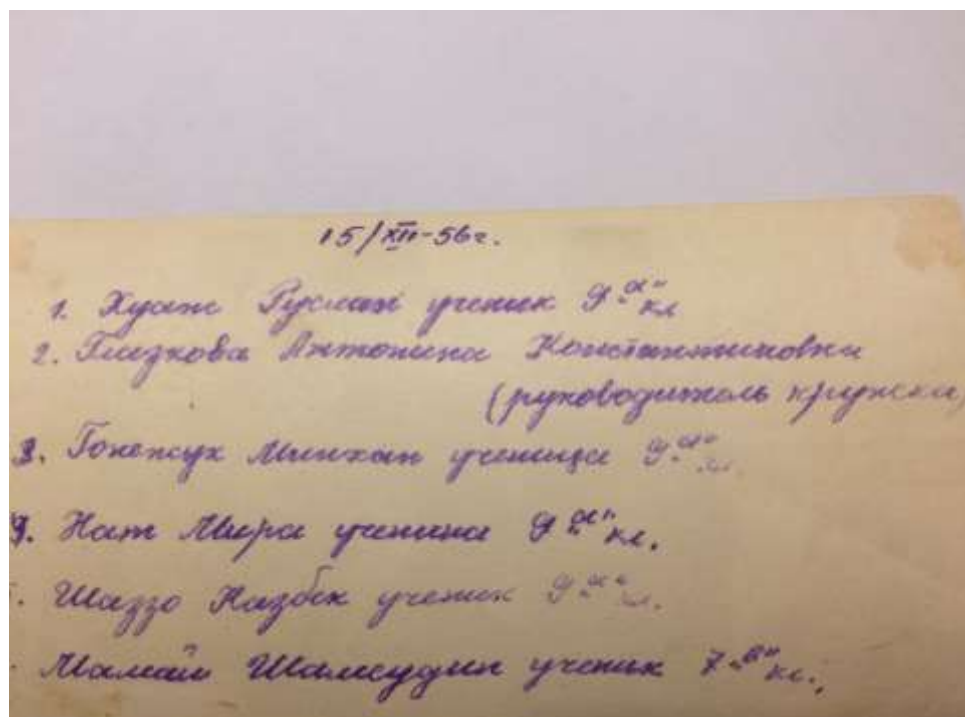 15/XII-56г.
1. Хуаж Руслан ученик 9 „а" кл
2. Глазкова Антонина Константиновна
(руководитель кружка)
3. Гонежук Минхан ученица 9 „а" кл.
4. Нат Мира ученица 9 „а" кл.
Шаззо Казбек ученик 9 „а" кл.
Мамай Шамсудин ученик 7 „в" кл.